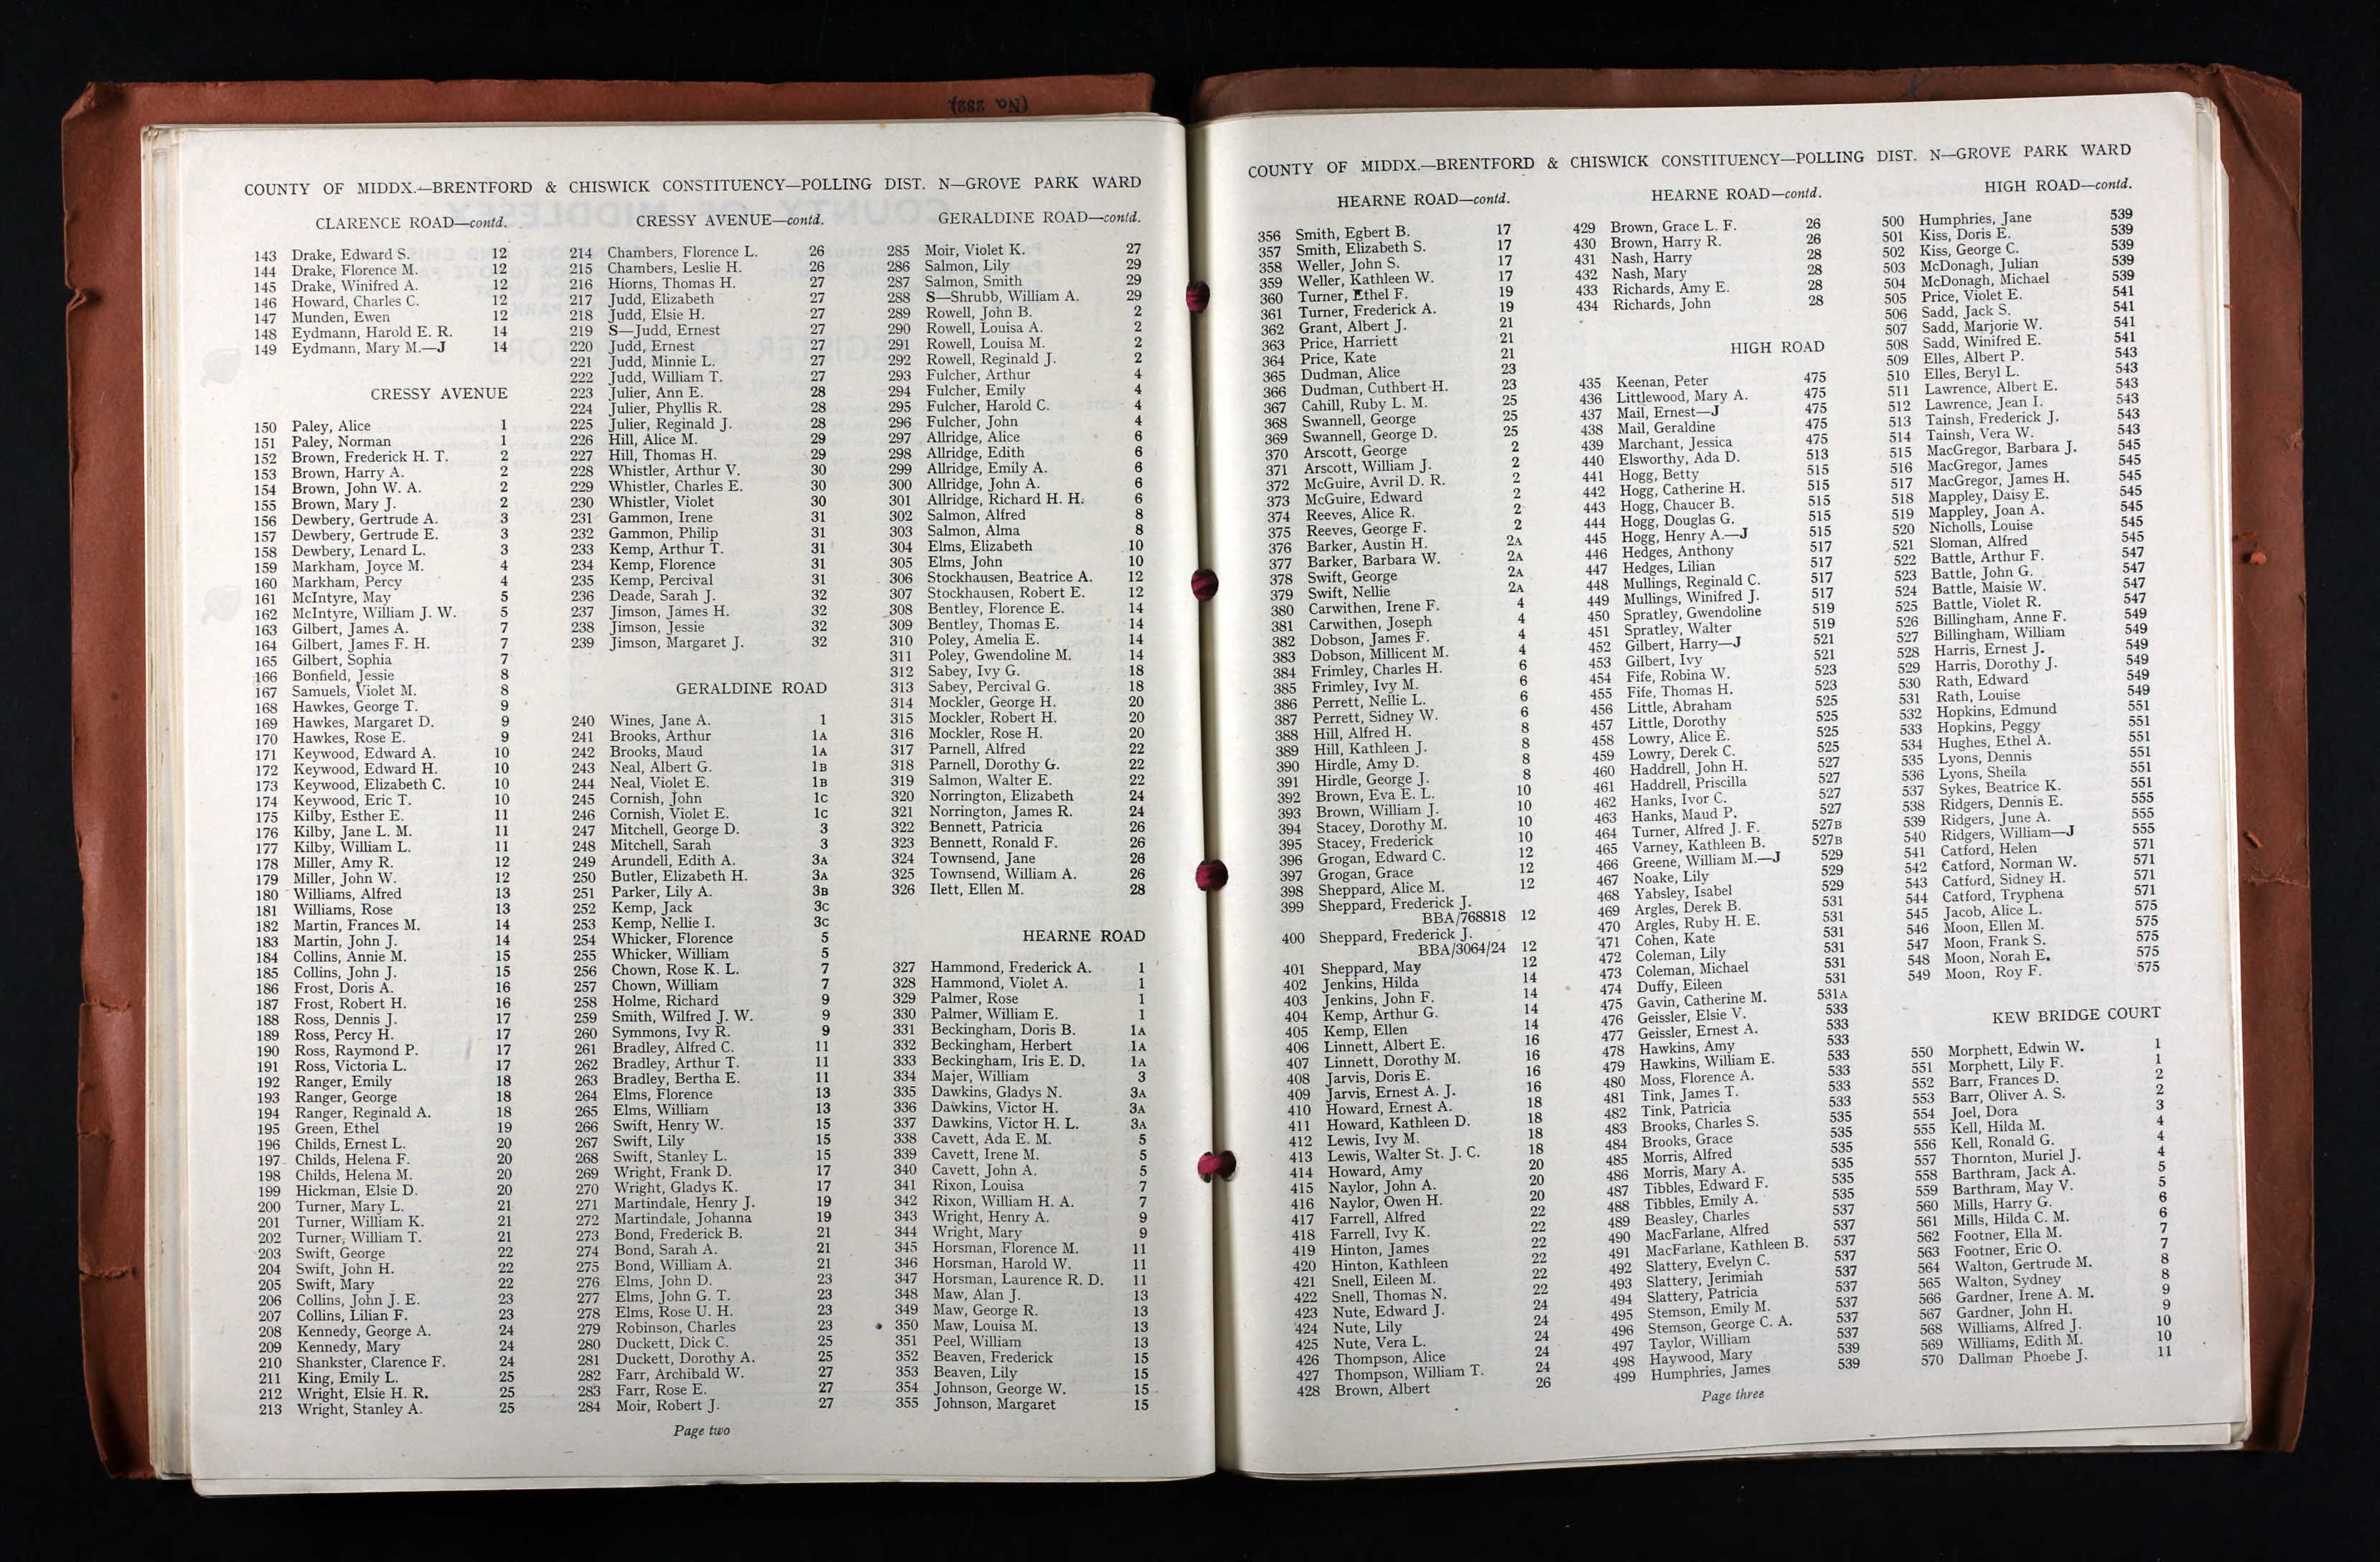 (No. 282)
COUNTY OF MIDDX.—BRENTFORD & CHISWICK CONSTITUENCY—POLLING DIST. N—GROVE PARK WARD
CLARENCE ROAD—contd.
143 Drake, Edward S. 12
144 Drake, Florence M. 12
145 Drake, Winifred A. 12
146 Howard, Charles C. 12
147 Munden, Ewen 12
148 Eydmann, Harold E. R. 14
149 Eydmann, Mary M.—J 14
CRESSY AVENUE
150 Paley, Alice 1
151 Paley, Norman 1
152 Brown, Frederick H. T. 2
153 Brown, Harry A. 2
154 Brown, John W. A. 2
155 Brown, Mary J. 2
156 Dewbery, Gertrude A. 3
157 Dewbery, Gertrude E. 3
158 Dewbery, Lenard L. 3
159 Markham, Joyce M. 4
160 Markham, Percy 4
161 McIntyre, May 5
162 McIntyre, William J. W. 5
163 Gilbert, James A. 7
164 Gilbert, James F. H. 7
165 Gilbert, Sophia 7
166 Bonfield, Jessie 8
167 Samuels, Violet M. 8
168 Hawkes, George T. 9
169 Hawkes, Margaret D. 9
170 Hawkes, Rose E. 9
171 Keywood, Edward A. 10
172 Keywood, Edward H. 10
173 Keywood, Elizabeth C. 10
174 Keywood, Eric T. 10
175 Kilby, Esther E. 11
176 Kilby, Jane L. M. 11
177 Kilby, William L. 11
178 Miller, Amy R. 12
179 Miller, John W. 12
180 Williams, Alfred 13
181 Williams, Rose 13
182 Martin, Frances M. 14
183 Martin, John J. 14
184 Collins, Annie M. 15
185 Collins, John J. 15
186 Frost, Doris A. 16
187 Frost, Robert H. 16
188 Ross, Dennis J. 17
189 Ross, Percy H. 17
190 Ross, Raymond P. 17
191 Ross, Victoria L. 17
192 Ranger, Emily 18
193 Ranger, George 18
194 Ranger, Reginald A. 18
195 Green, Ethel 19
196 Childs, Ernest L. 20
197 Childs, Helena F. 20
198 Childs, Helena M. 20
199 Hickman, Elsie D. 20
200 Turner, Mary L. 21
201 Turner, William K. 21
202 Turner, William T. 21
203 Swift, George 22
204 Swift, John H. 22
205 Swift, Mary 22
206 Collins, John J. E. 23
207 Collins, Lilian F. 23
208 Kennedy, George A. 24
209 Kennedy, Mary 24
210 Shankster, Clarence F. 24
211 King, Emily L. 25
212 Wright, Elsie H. R. 25
213 Wright, Stanley A. 25
CRESSY AVENUE—contd.
214 Chambers, Florence L. 26
215 Chambers, Leslie H. 26
216 Hiorns, Thomas H. 27
217 Judd, Elizabeth 27
218 Judd, Elsie H. 27
219 S—Judd, Ernest 27
220 Judd, Ernest 27
221 Judd, Minnie L. 27
222 Judd, William T. 27
223 Julier, Ann E. 28
224 Julier, Phyllis R. 28
225 Julier, Reginald J. 28
226 Hill, Alice M. 29
227 Hill, Thomas H. 29
228 Whistler, Arthur V. 30
229 Whistler, Charles E. 30
230 Whistler, Violet 30
231 Gammon, Irene 31
232 Gammon, Philip 31
233 Kemp, Arthur T. 31
234 Kemp, Florence 31
235 Kemp, Percival 31
236 Deade, Sarah J. 32
237 Jimson, James H. 32
238 Jimson, Jessie 32
239 Jimson, Margaret J. 32
GERALDINE ROAD
240 Wines, Jane A. 1
241 Brooks, Arthur 1A
242 Brooks, Maud 1A
243 Neal, Albert G. 1B
244 Neal, Violet E. 1B
245 Cornish, John 1C
246 Cornish, Violet E. 1C
247 Mitchell, George D. 3
248 Mitchell, Sarah 3
249 Arundell, Edith A. 3A
250 Butler, Elizabeth H. 3A
251 Parker, Lily A. 3B
252 Kemp, Jack 3C
253 Kemp, Nellie I. 3C
254 Whicker, Florence 5
255 Whicker, William 5
256 Chown, Rose K. L. 7
257 Chown, William 7
258 Holme, Richard 9
259 Smith, Wilfred J. W. 9
260 Symmons, Ivy R. 9
261 Bradley, Alfred C. 11
262 Bradley, Arthur T. 11
263 Bradley, Bertha E. 11
264 Elms, Florence 13
265 Elms, William 13
266 Swift, Henry W. 15
267 Swift, Lily 15
268 Swift, Stanley L. 15
269 Wright, Frank D. 17
270 Wright, Gladys K. 17
271 Martindale, Henry J. 19
272 Martindale, Johanna 19
273 Bond, Frederick B. 21
274 Bond, Sarah A. 21
275 Bond, William A. 21
276 Elms, John D. 23
277 Elms, John G. T. 23
278 Elms, Rose U. H. 23
279 Robinson, Charles 23
280 Duckett, Dick C. 25
281 Duckett, Dorothy A. 25
282 Farr, Archibald W. 27
283 Farr, Rose E. 27
284 Moir, Robert J. 27
GERALDINE ROAD—contd.
285 Moir, Violet K. 27
286 Salmon, Lily 29
287 Salmon, Smith 29
288 S—Shrubb, William A. 29
289 Rowell, John B. 2
290 Rowell, Louisa A. 2
291 Rowell, Louisa M. 2
292 Rowell, Reginald J. 2
293 Fulcher, Arthur 4
294 Fulcher, Emily 4
295 Fulcher, Harold C. 4
296 Fulcher, John 4
297 Allridge, Alice 6
298 Allridge, Edith 6
299 Allridge, Emily A. 6
300 Allridge, John A. 6
301 Allridge, Richard H. H. 6
302 Salmon, Alfred 8
303 Salmon, Alma 8
304 Elms, Elizabeth 10
305 Elms, John 10
306 Stockhausen, Beatrice A. 12
307 Stockhausen, Robert E. 12
308 Bentley, Florence E. 14
309 Bentley, Thomas E. 14
310 Poley, Amelia E. 14
311 Poley, Gwendoline M. 14
312 Sabey, Ivy G. 18
313 Sabey, Percival G. 18
314 Mockler, George H. 20
315 Mockler, Robert H. 20
316 Mockler, Rose H. 20
317 Parnell, Alfred 22
318 Parnell, Dorothy G. 22
319 Salmon, Walter E. 22
320 Norrington, Elizabeth 24
321 Norrington, James R. 24
322 Bennett, Patricia 26
323 Bennett, Ronald F. 26
324 Townsend, Jane 26
325 Townsend, William A. 26
326 Ilett, Ellen M. 28
HEARNE ROAD
327 Hammond, Frederick A. 1
328 Hammond, Violet A. 1
329 Palmer, Rose 1
330 Palmer, William E. 1
331 Beckingham, Doris B. 1A
332 Beckingham, Herbert 1A
333 Beckingham, Iris E. D. 1A
334 Majer, William 3
335 Dawkins, Gladys N. 3A
336 Dawkins, Victor H. 3A
337 Dawkins, Victor H. L. 3A
338 Cavett, Ada E. M. 5
339 Cavett, Irene M. 5
340 Cavett, John A. 5
341 Rixon, Louisa 7
342 Rixon, William H. A. 7
343 Wright, Henry A. 9
344 Wright, Mary 9
345 Horsman, Florence M. 11
346 Horsman, Harold W. 11
347 Horsman, Laurence R. D. 11
348 Maw, Alan J. 13
349 Maw, George R. 13
350 Maw, Louisa M. 13
351 Peel, William 13
352 Beaven, Frederick 15
353 Beaven, Lily 15
354 Johnson, George W. 15
355 Johnson, Margaret 15
Page two
COUNTY OF MIDDX.—BRENTFORD & CHISWICK CONSTITUENCY—POLLING DIST. N—GROVE PARK WARD
HEARNE ROAD—contd.
356 Smith, Egbert B. 17
357 Smith, Elizabeth S. 17
358 Weller, John S. 17
359 Weller, Kathleen W. 17
360 Turner, Ethel F. 19
361 Turner, Frederick A. 19
362 Grant, Albert J. 21
363 Price, Harriett 21
364 Price, Kate 21
365 Dudman, Alice 23
366 Dudman, Cuthbert H. 23
367 Cahill, Ruby L. M. 25
368 Swannell, George 25
369 Swannell, George D. 25
370 Arscott, George 2
371 Arscott, William J. 2
372 McGuire, Avril D. R. 2
373 McGuire, Edward 2
374 Reeves, Alice R. 2
375 Reeves, George F. 2
376 Barker, Austin H. 2A
377 Barker, Barbara W. 2A
378 Swift, George 2A
379 Swift, Nellie 2A
380 Carwithen, Irene F. 4
381 Carwithen, Joseph 4
382 Dobson, James F. 4
383 Dobson, Millicent M. 4
384 Frimley, Charles H. 6
385 Frimley, Ivy M. 6
386 Perrett, Nellie L. 6
387 Perrett, Sidney W. 6
388 Hill, Alfred H. 8
389 Hill, Kathleen J. 8
390 Hirdle, Amy D. 8
391 Hirdle, George J. 8
392 Brown, Eva E. L. 10
393 Brown, William J. 10
394 Stacey, Dorothy M. 10
395 Stacey, Frederick 10
396 Grogan, Edward C. 12
397 Grogan, Grace 12
398 Sheppard, Alice M. 12
399 Sheppard, Frederick J.
BBA/768818 12
400 Sheppard, Frederick J.
BBA/3064/24 12
401 Sheppard, May 12
402 Jenkins, Hilda 14
403 Jenkins, John F. 14
404 Kemp, Arthur G. 14
405 Kemp, Ellen 14
406 Linnett, Albert E. 16
407 Linnett, Dorothy M. 16
408 Jarvis, Doris E. 16
409 Jarvis, Ernest A. J. 16
410 Howard, Ernest A. 18
411 Howard, Kathleen D. 18
412 Lewis, Ivy M. 18
413 Lewis, Walter St. J. C. 18
414 Howard, Amy 20
415 Naylor, John A. 20
416 Naylor, Owen H. 20
417 Farrell, Alfred 22
418 Farrell, Ivy K. 22
419 Hinton, James 22
420 Hinton, Kathleen 22
421 Snell, Eileen M. 22
422 Snell, Thomas N. 22
423 Nute, Edward J. 24
424 Nute, Lily 24
425 Nute, Vera L. 24
426 Thompson, Alice 24
427 Thompson, William T. 24
428 Brown, Albert 26
HEARNE ROAD—contd.
429 Brown, Grace L. F. 26
430 Brown, Harry R. 26
431 Nash, Harry 28
432 Nash, Mary 28
433 Richards, Amy E. 28
434 Richards, John 28
HIGH ROAD
435 Keenan, Peter 475
436 Littlewood, Mary A. 475
437 Mail, Ernest—J 475
438 Mail, Geraldine 475
439 Marchant, Jessica 475
440 Elsworthy, Ada D. 513
441 Hogg, Betty 515
442 Hogg, Catherine H. 515
443 Hogg, Chaucer B. 515
444 Hogg, Douglas G. 515
445 Hogg, Henry A.—J 515
446 Hedges, Anthony 517
447 Hedges, Lilian 517
448 Mullings, Reginald C. 517
449 Mullings, Winifred J. 517
450 Spratley, Gwendoline 519
451 Spratley, Walter 519
452 Gilbert, Harry—J 521
453 Gilbert, Ivy 521
454 Fife, Robina W. 523
455 Fife, Thomas H. 523
456 Little, Abraham 525
457 Little, Dorothy 525
458 Lowry, Alice E. 525
459 Lowry, Derek C. 525
460 Haddrell, John H. 527
461 Haddrell, Priscilla 527
462 Hanks, Ivor C. 527
463 Hanks, Maud P. 527
464 Turner, Alfred J. F. 527B
465 Varney, Kathleen B. 527B
466 Greene, William M.—J 529
467 Noake, Lily 529
468 Yabsley, Isabel 529
469 Argles, Derek B. 531
470 Argles, Ruby H. E. 531
471 Cohen, Kate 531
472 Coleman, Lily 531
473 Coleman, Michael 531
474 Duffy, Eileen 531
475 Gavin, Catherine M. 531A
476 Geissler, Elsie V. 533
477 Geissler, Ernest A. 533
478 Hawkins, Amy 533
479 Hawkins, William E. 533
480 Moss, Florence A. 533
481 Tink, James T. 533
482 Tink, Patricia 533
483 Brooks, Charles S. 535
484 Brooks, Grace 535
485 Morris, Alfred 535
486 Morris, Mary A. 535
487 Tibbles, Edward F. 535
488 Tibbles, Emily A. 535
489 Beasley, Charles 537
490 MacFarlane, Alfred 537
491 MacFarlane, Kathleen B. 537
492 Slattery, Evelyn C. 537
493 Slattery, Jerimiah 537
494 Slattery, Patricia 537
495 Stemson, Emily M. 537
496 Stemson, George C. A. 537
497 Taylor, William 537
498 Haywood, Mary 539
499 Humphries, James 539
HIGH ROAD—contd.
500 Humphries, Jane 539
501 Kiss, Doris E. 539
502 Kiss, George C. 539
503 McDonagh, Julian 539
504 McDonagh, Michael 539
505 Price, Violet E. 541
506 Sadd, Jack S. 541
507 Sadd, Marjorie W. 541
508 Sadd, Winifred E. 541
509 Elles, Albert P. 543
510 Elles, Beryl L. 543
511 Lawrence, Albert E. 543
512 Lawrence, Jean I. 543
513 Tainsh, Frederick J. 543
514 Tainsh, Vera W. 543
515 MacGregor, Barbara J. 545
516 MacGregor, James 545
517 MacGregor, James H. 545
518 Mappley, Daisy E. 545
519 Mappley, Joan A. 545
520 Nicholls, Louise 545
521 Sloman, Alfred 545
522 Battle, Arthur F. 547
523 Battle, John G. 547
524 Battle, Maisie W. 547
525 Battle, Violet R. 547
526 Billingham, Anne F. 549
527 Billingham, William 549
528 Harris, Ernest J. 549
529 Harris, Dorothy J. 549
530 Rath, Edward 549
531 Rath, Louise 549
532 Hopkins, Edmund 551
533 Hopkins, Peggy 551
534 Hughes, Ethel A. 551
535 Lyons, Dennis 551
536 Lyons, Sheila 551
537 Sykes, Beatrice K. 551
538 Ridgers, Dennis E. 555
539 Ridgers, June A. 555
540 Ridgers, William—J 555
541 Catford, Helen 571
542 Catford, Norman W. 571
543 Catford, Sidney H. 571
544 Catford, Tryphena 571
545 Jacob, Alice L. 575
546 Moon, Ellen M. 575
547 Moon, Frank S. 575
548 Moon, Norah E. 575
549 Moon, Roy F. 575
KEW BRIDGE COURT
550 Morphett, Edwin W. 1
551 Morphett, Lily F. 1
552 Barr, Frances D. 2
553 Barr, Oliver A. S. 2
554 Joel, Dora 3
555 Kell, Hilda M. 4
556 Kell, Ronald G. 4
557 Thornton, Muriel J. 4
558 Barthram, Jack A. 5
559 Barthram, May V. 5
560 Mills, Harry G. 6
561 Mills, Hilda C. M. 6
562 Footner, Ella M. 7
563 Footner, Eric O. 7
564 Walton, Gertrude M. 8
565 Walton, Sydney 8
566 Gardner, Irene A. M. 9
567 Gardner, John H. 9
568 Williams, Alfred J. 10
569 Williams, Edith M. 10
570 Dallman Phoebe J. 11
Page three